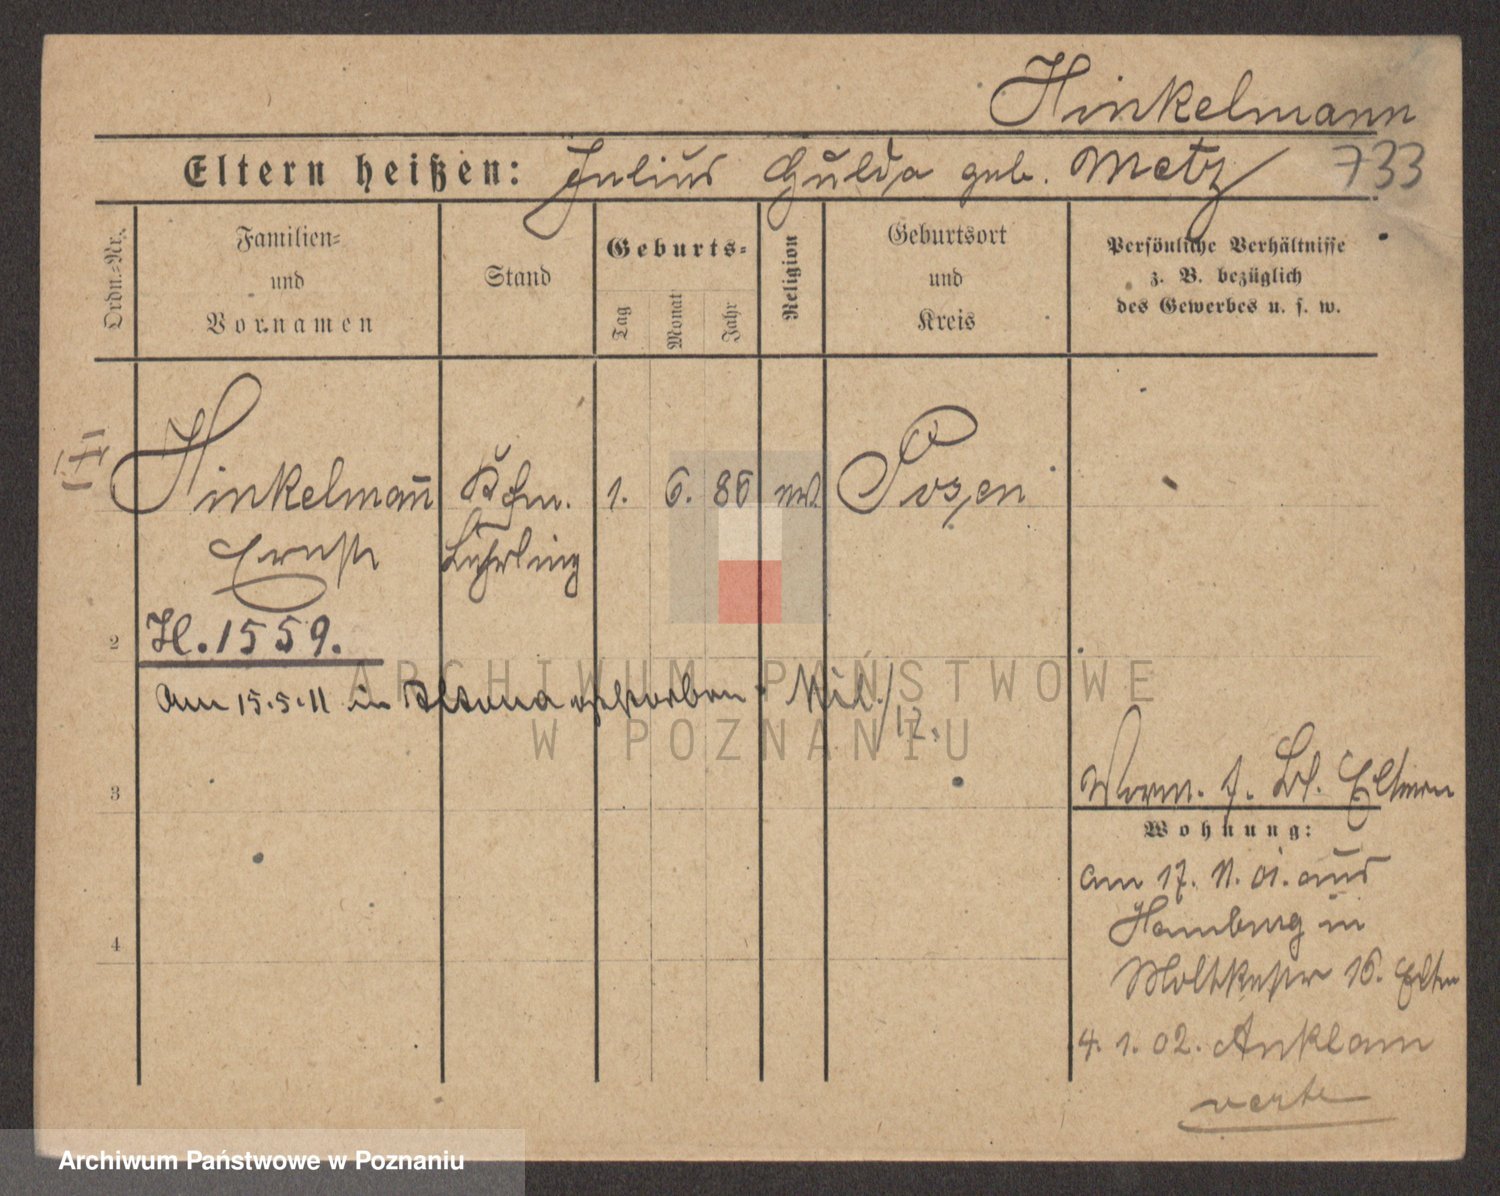 Hinkelmann
Eltern heißen: Julius Hulda geb. Metz 733
Ordn.-Nr.
Familien-
und
Vornamen
Stand
Geburts-
Tag
Monat
Jahr
Religion
Geburtsort
und
Kreis
Persönliche Verhältnisse
z. B. bezüglich
des Gewerbes u. s. w.
Hinkelmann Kfm. 1. 6. 86 Posen
Ernst Lehrling
2
H. 1559.
Am 15.5.11 in Altona gestorben. Mil./12.
3
4
Vorm. s. Bl. Eltern
Wohnung:
am 17. 11. 01. aus
Hamburg in
Moltkestr 16. Eltern
4. 1. 02. Anklam
verte
ARCHIWUM PAŃSTWOWE
W POZNANIU
Archiwum Państwowe w Poznaniu